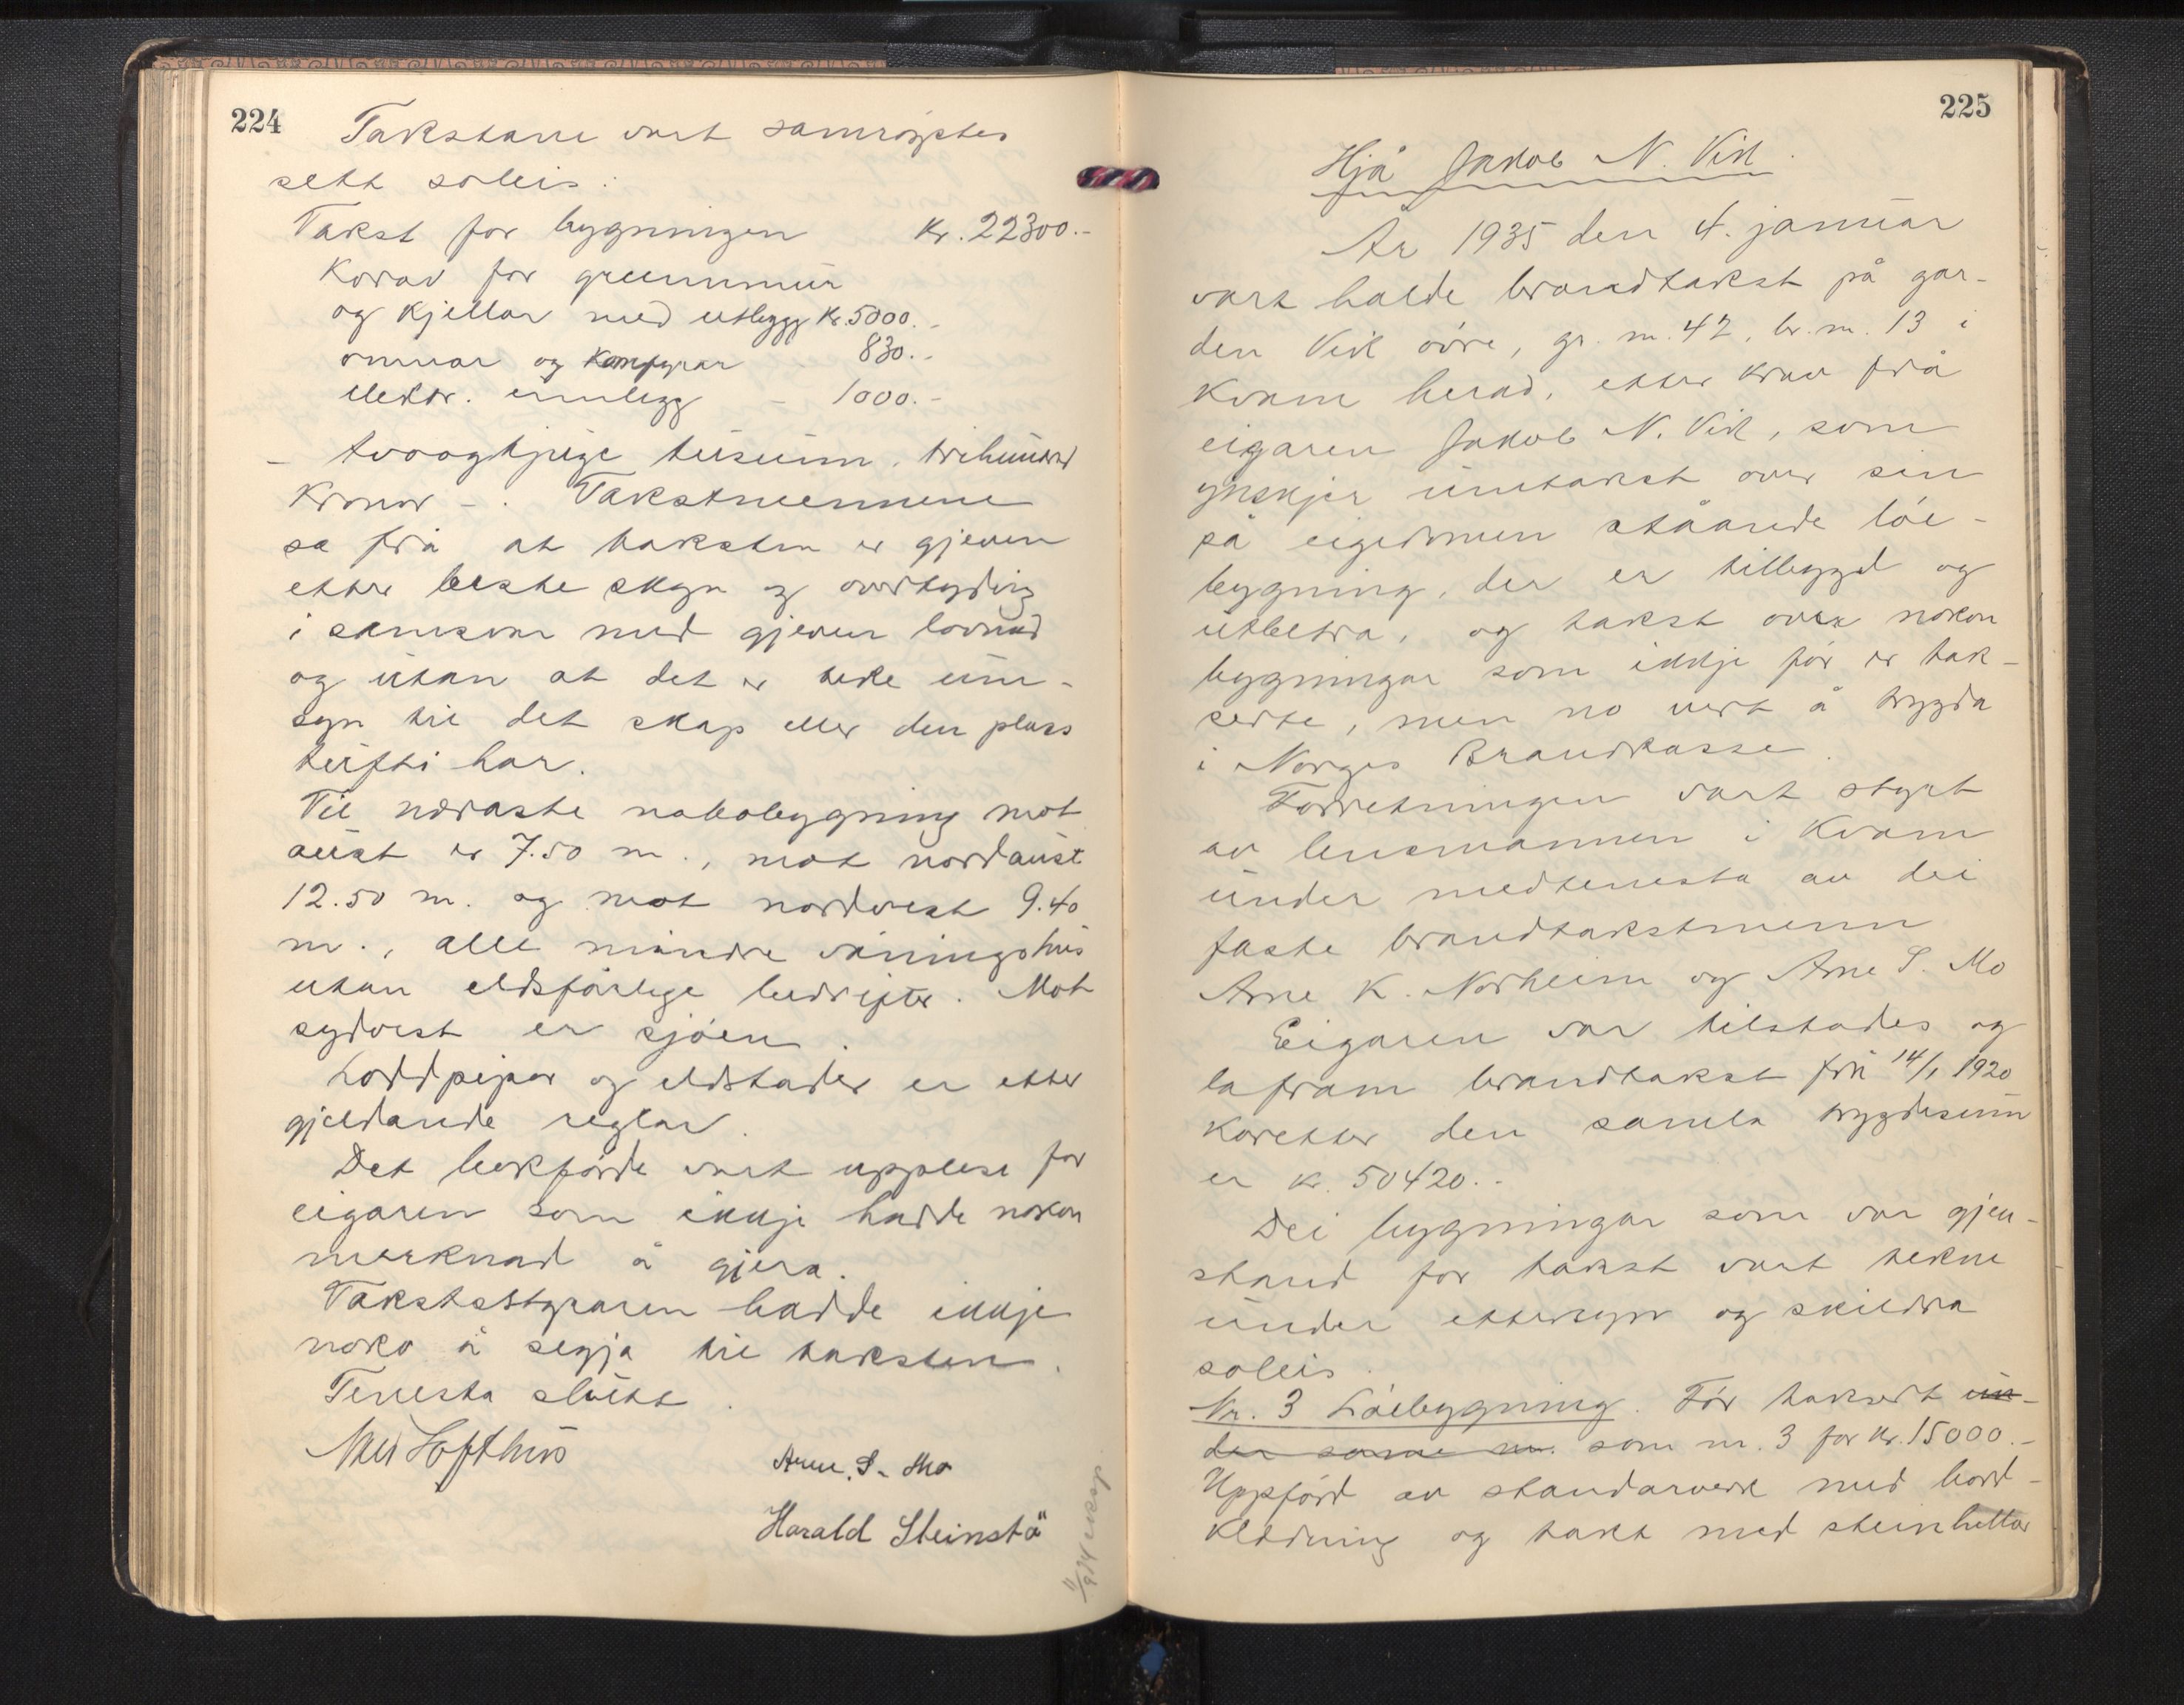 224
Takstane vart samrøystes
sett soleis:
Takst for bygningen Kr. 22300.-
Korav for grunnmur
og kjellar med utbygg Kr. 5000.-
omnar og komfyrar - 830.-
elektr. innlegg - 1000.-
- tvoogtjuge tusunn, trihundrad
kronor -. Takstmennene
sa frå at taksten er gjeven
etter beste skyn og overtyding
i samsvar med gjeven lovnad
og utan at det er teke um-
syn til det skap eller den plass
tufti har.
Til næraste nabobygning mot
aust er 7.50 m., mot nordaust
12.50 m. og mot nordvest 9.40
m., alle mindre våningshus
utan eldsfårlege bedrifter. Mot
sydvest er sjøen.
Loddpipor og eldstader er etter
gjeldande reglar.
Det bokførde vart upplese for
eigaren som ikkje hadde nokon
merknad å gjera.
Takststyraren hadde ikkje
noko å segja til taksten.
Tenesta slutt.
Nils Lofthus
Arne S. Mo
Harald Steinstø
225
Hjå Jakob N. Vik.
År 1935 den 4. januar
vart halde brandtakst på gar-
den Vik øvre, gr. nr. 42, br. nr. 13 i
Kvam herad, etter krav frå
eigaren Jakob N. Vik, som
ynskjer umtakst over sin
på eigedomen ståande löe-
bygning, der er tilbygd og
utbetra, og takst over nokon
bygningar som ikkje før er tak-
serte, men no vert å trygda
i Norges Brandkasse.
Forretningen vart styrt
av lensmannen i Kvam
under medtenesta av dei
faste brandtakstmenn
Arne K. Norheim og Arne S. Mo
Eigaren var tilstades og
la fram brandtakst frå 14/1 1920
koretter den samla trygdesum
er kr. 50420.-
Dei bygningar som var gjen-
stand for takst vart tekne
under ettersyn og skildra
soleis.
Nr. 3 Löebygning. Før taksert un-
der same nr. som nr. 3 for kr. 15000.-
Uppførd av standarverk med bord-
klædning og takt med steinhellor